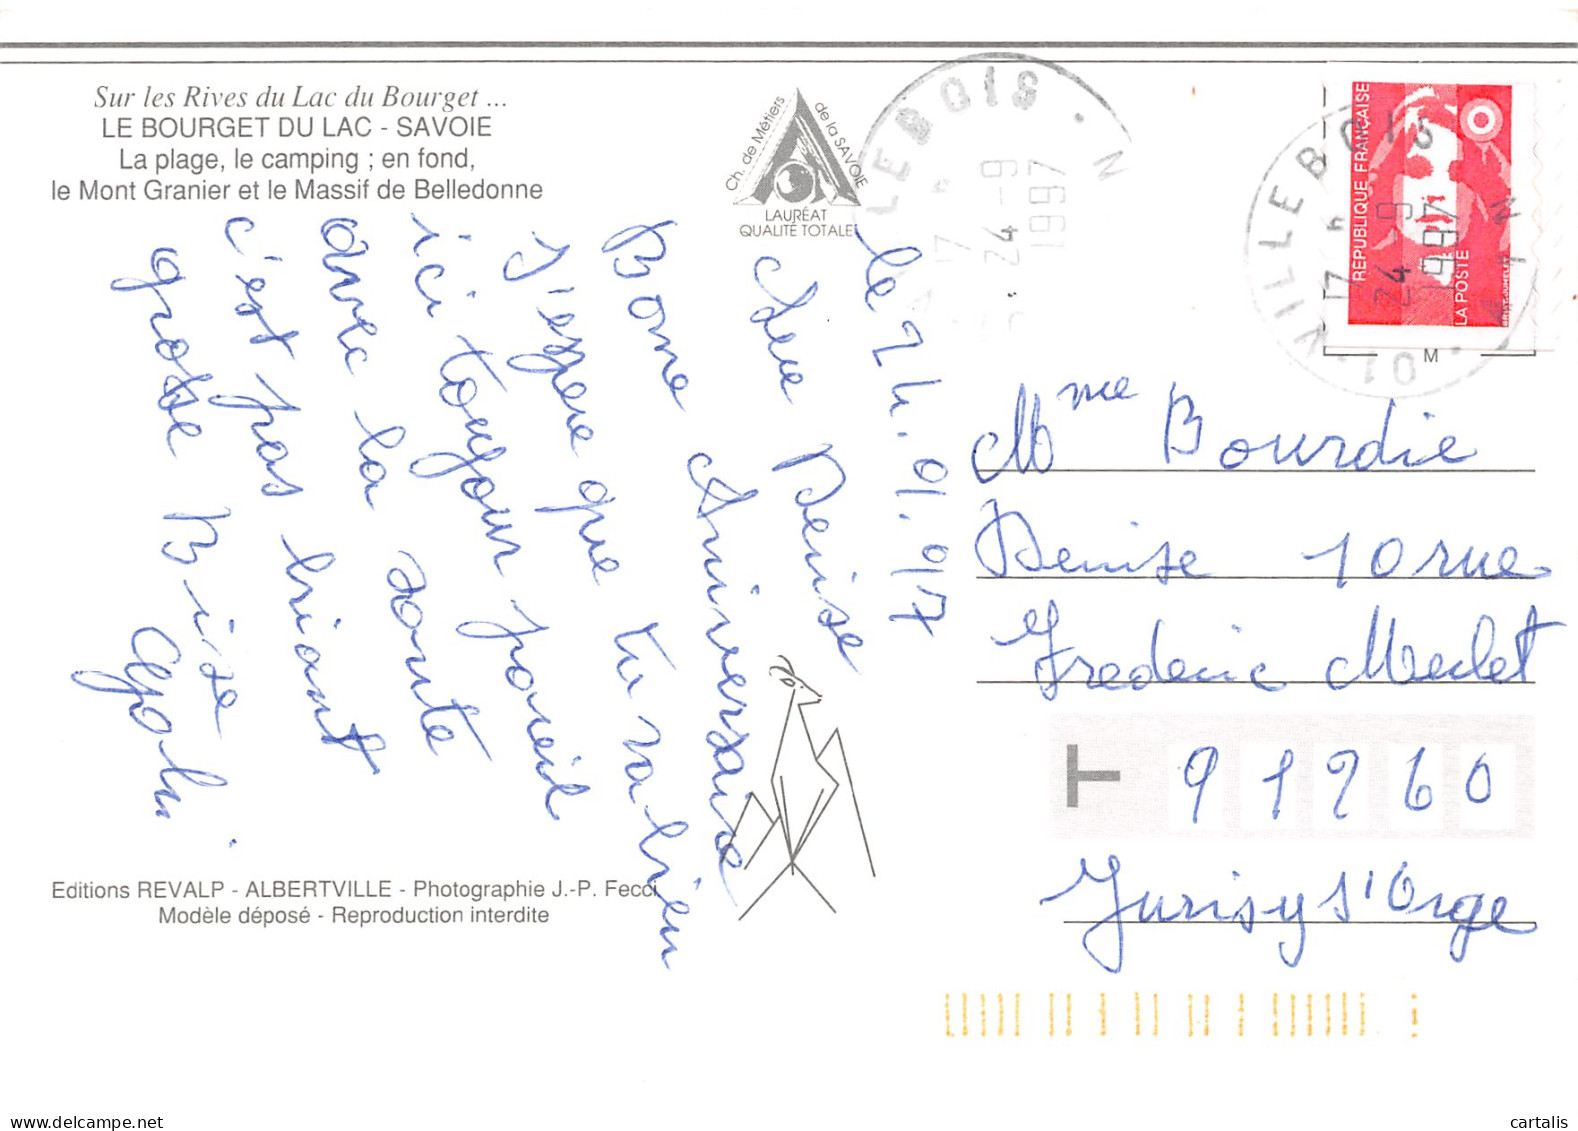 Sur les Rives du Lac du Bourget ...
LE BOURGET DU LAC - SAVOIE
La plage, le camping ; en fond,
le Mont Granier et le Massif de Belledonne
Ch. de Métiers de la SAVOIE
LAURÉAT
QUALITÉ TOTALE
VILLEBOIS
17 h
24 - 9
1997
01 VILLEBOIS
17 h
24 9
1997
REPUBLIQUE FRANÇAISE
LA POSTE
M
le 24.09.97
Chere Denise
Bone Anniversaire
J'espere que tu va bien
ici toujour pareil
avec la sante
c'est pas briant
grosse Bise
Mme Bourdie
Denise 10 rue
Frederic Merlet
T 91260
Jurisy s'Orge
Editions REVALP - ALBERTVILLE - Photographie J.-P. Fecci
Modèle déposé - Reproduction interdite
delcampe.net
cartalis